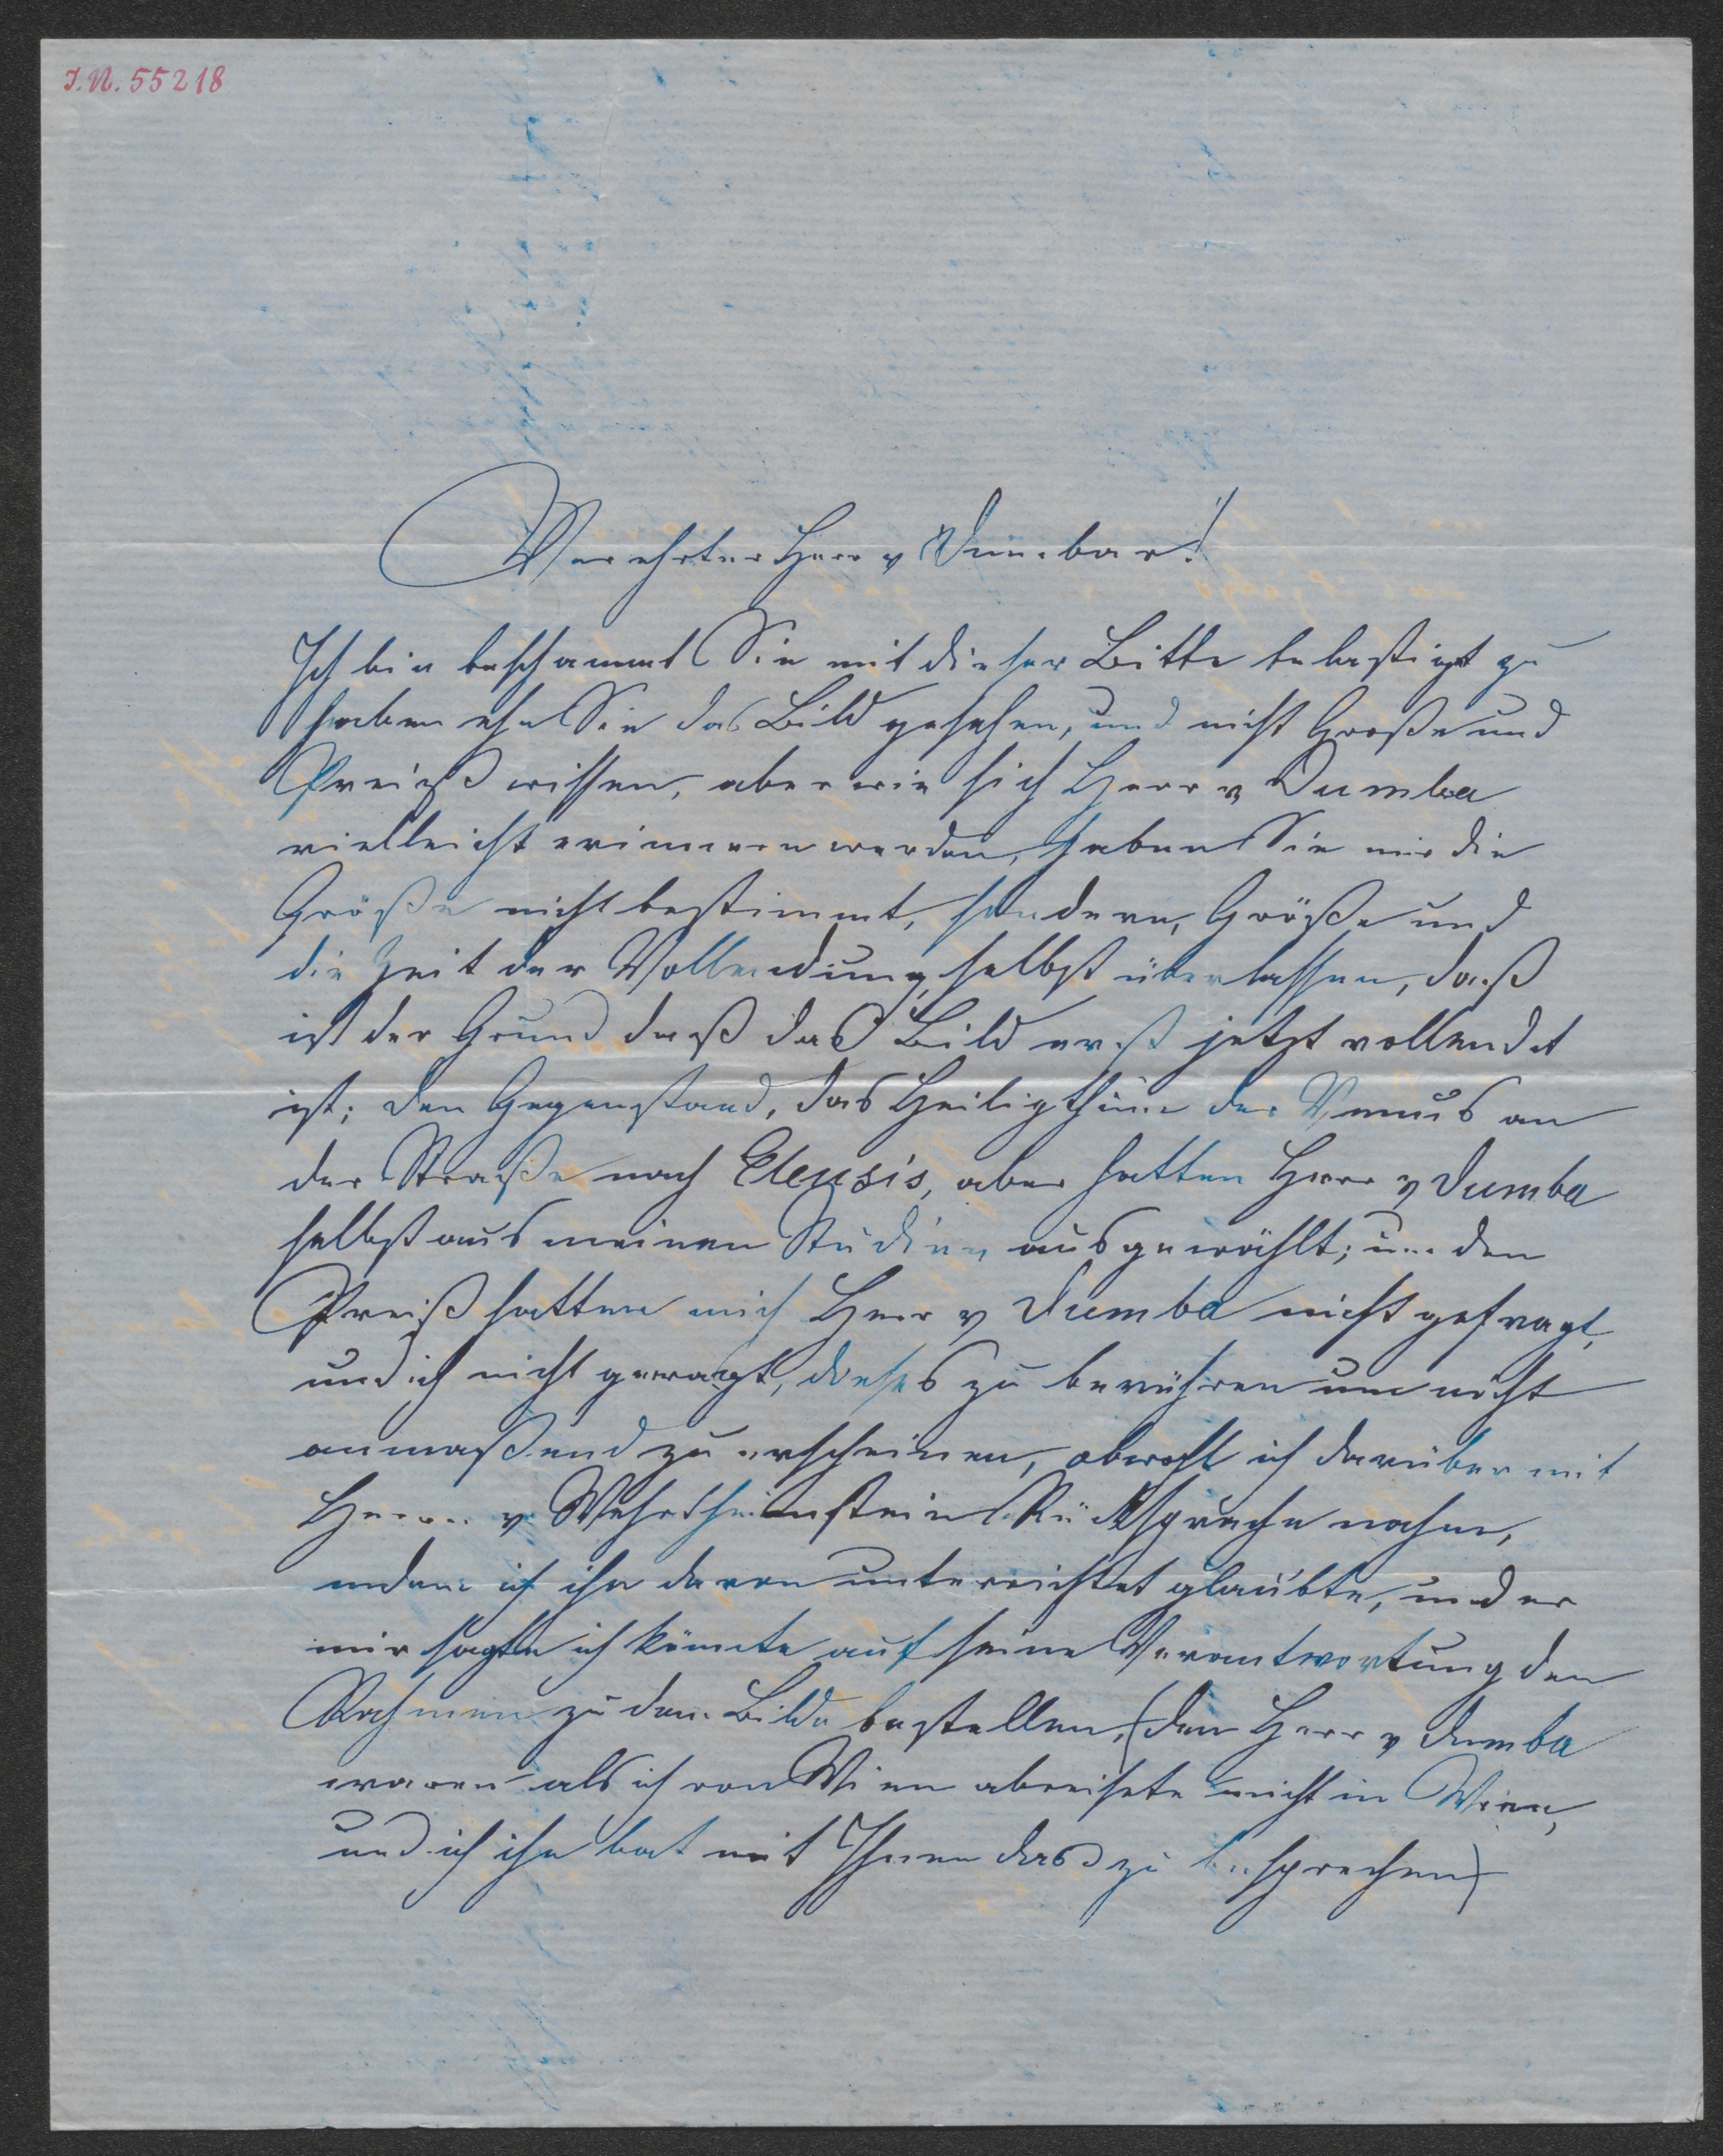 I.N. 55218
Verehrter Herr v Dumba!
Ich bin beschammt Sie mit dieser Bitte belästigt zu
haben ehe Sie das Bild gesehen, und nicht Große und
Preiß wissen, aber wie sich Herr v Dumba
vielleicht erinnern werden, haben Sie mir die
Größe nicht bestimmt, sondern, Größe und
die Zeit der Vollendung, selbst überlassen, daß
ist der Grund daß das Bild erst jetzt vollendet
ist; den Gegenstand, das Heiligthum der Venus an
der Straße nach Eleusis, aber hatten Herr v Dumba
selbst aus meinen Studien ausgewählt; um den
Preiß hatten mich Herr v Dumba nicht gefragt,
und ich nicht gewagt, dieses zu berühren um nicht
anmaßend zu erscheinen, obwohl ich darüber mit
Herrn v Rücksprache nahm,
indem ich ihn davon unterrichtet glaubte, und er
mir sagte ich könnte auf seine Verantwortung den
Rahmen zu dem Bilde bestellen, (den Herr v Dumba
waren als ich von Wien abreisete nicht in Wien,
und ich ihn bat mit Ihnen das zu besprechen)